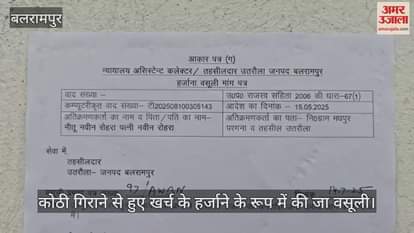 बलरामपुर
अमर उजाला
आकार पत्र (ग)
न्यायालय असिस्टेन्ट कलेक्टर/ तहसीलदार उतरौला जनपद बलरामपुर
हर्जाना वसूली मांग पत्र
वाद संख्या -
उ0प्र0 राजस्व संहिता 2006 की धारा-67(1)
कम्प्यूटरीकृत वाद संख्या- टी202508100305143
आदेश का दिनांक - 15.05.2025
अतिक्रमणकर्ता का नाम व पिता/पति का नाम-
नीतू नवीन रोहरा पत्नी नवीन रोहरा
अतिक्रमणकर्ता का पता- नि0ग्राम मधपुर
परगना व तहसील उतरौला
सेवा में,
तहसीलदार
उतरौला- जनपद बलरामपुर
कोठी गिराने से हुए खर्च के हर्जाने के रूप में की जा वसूली।